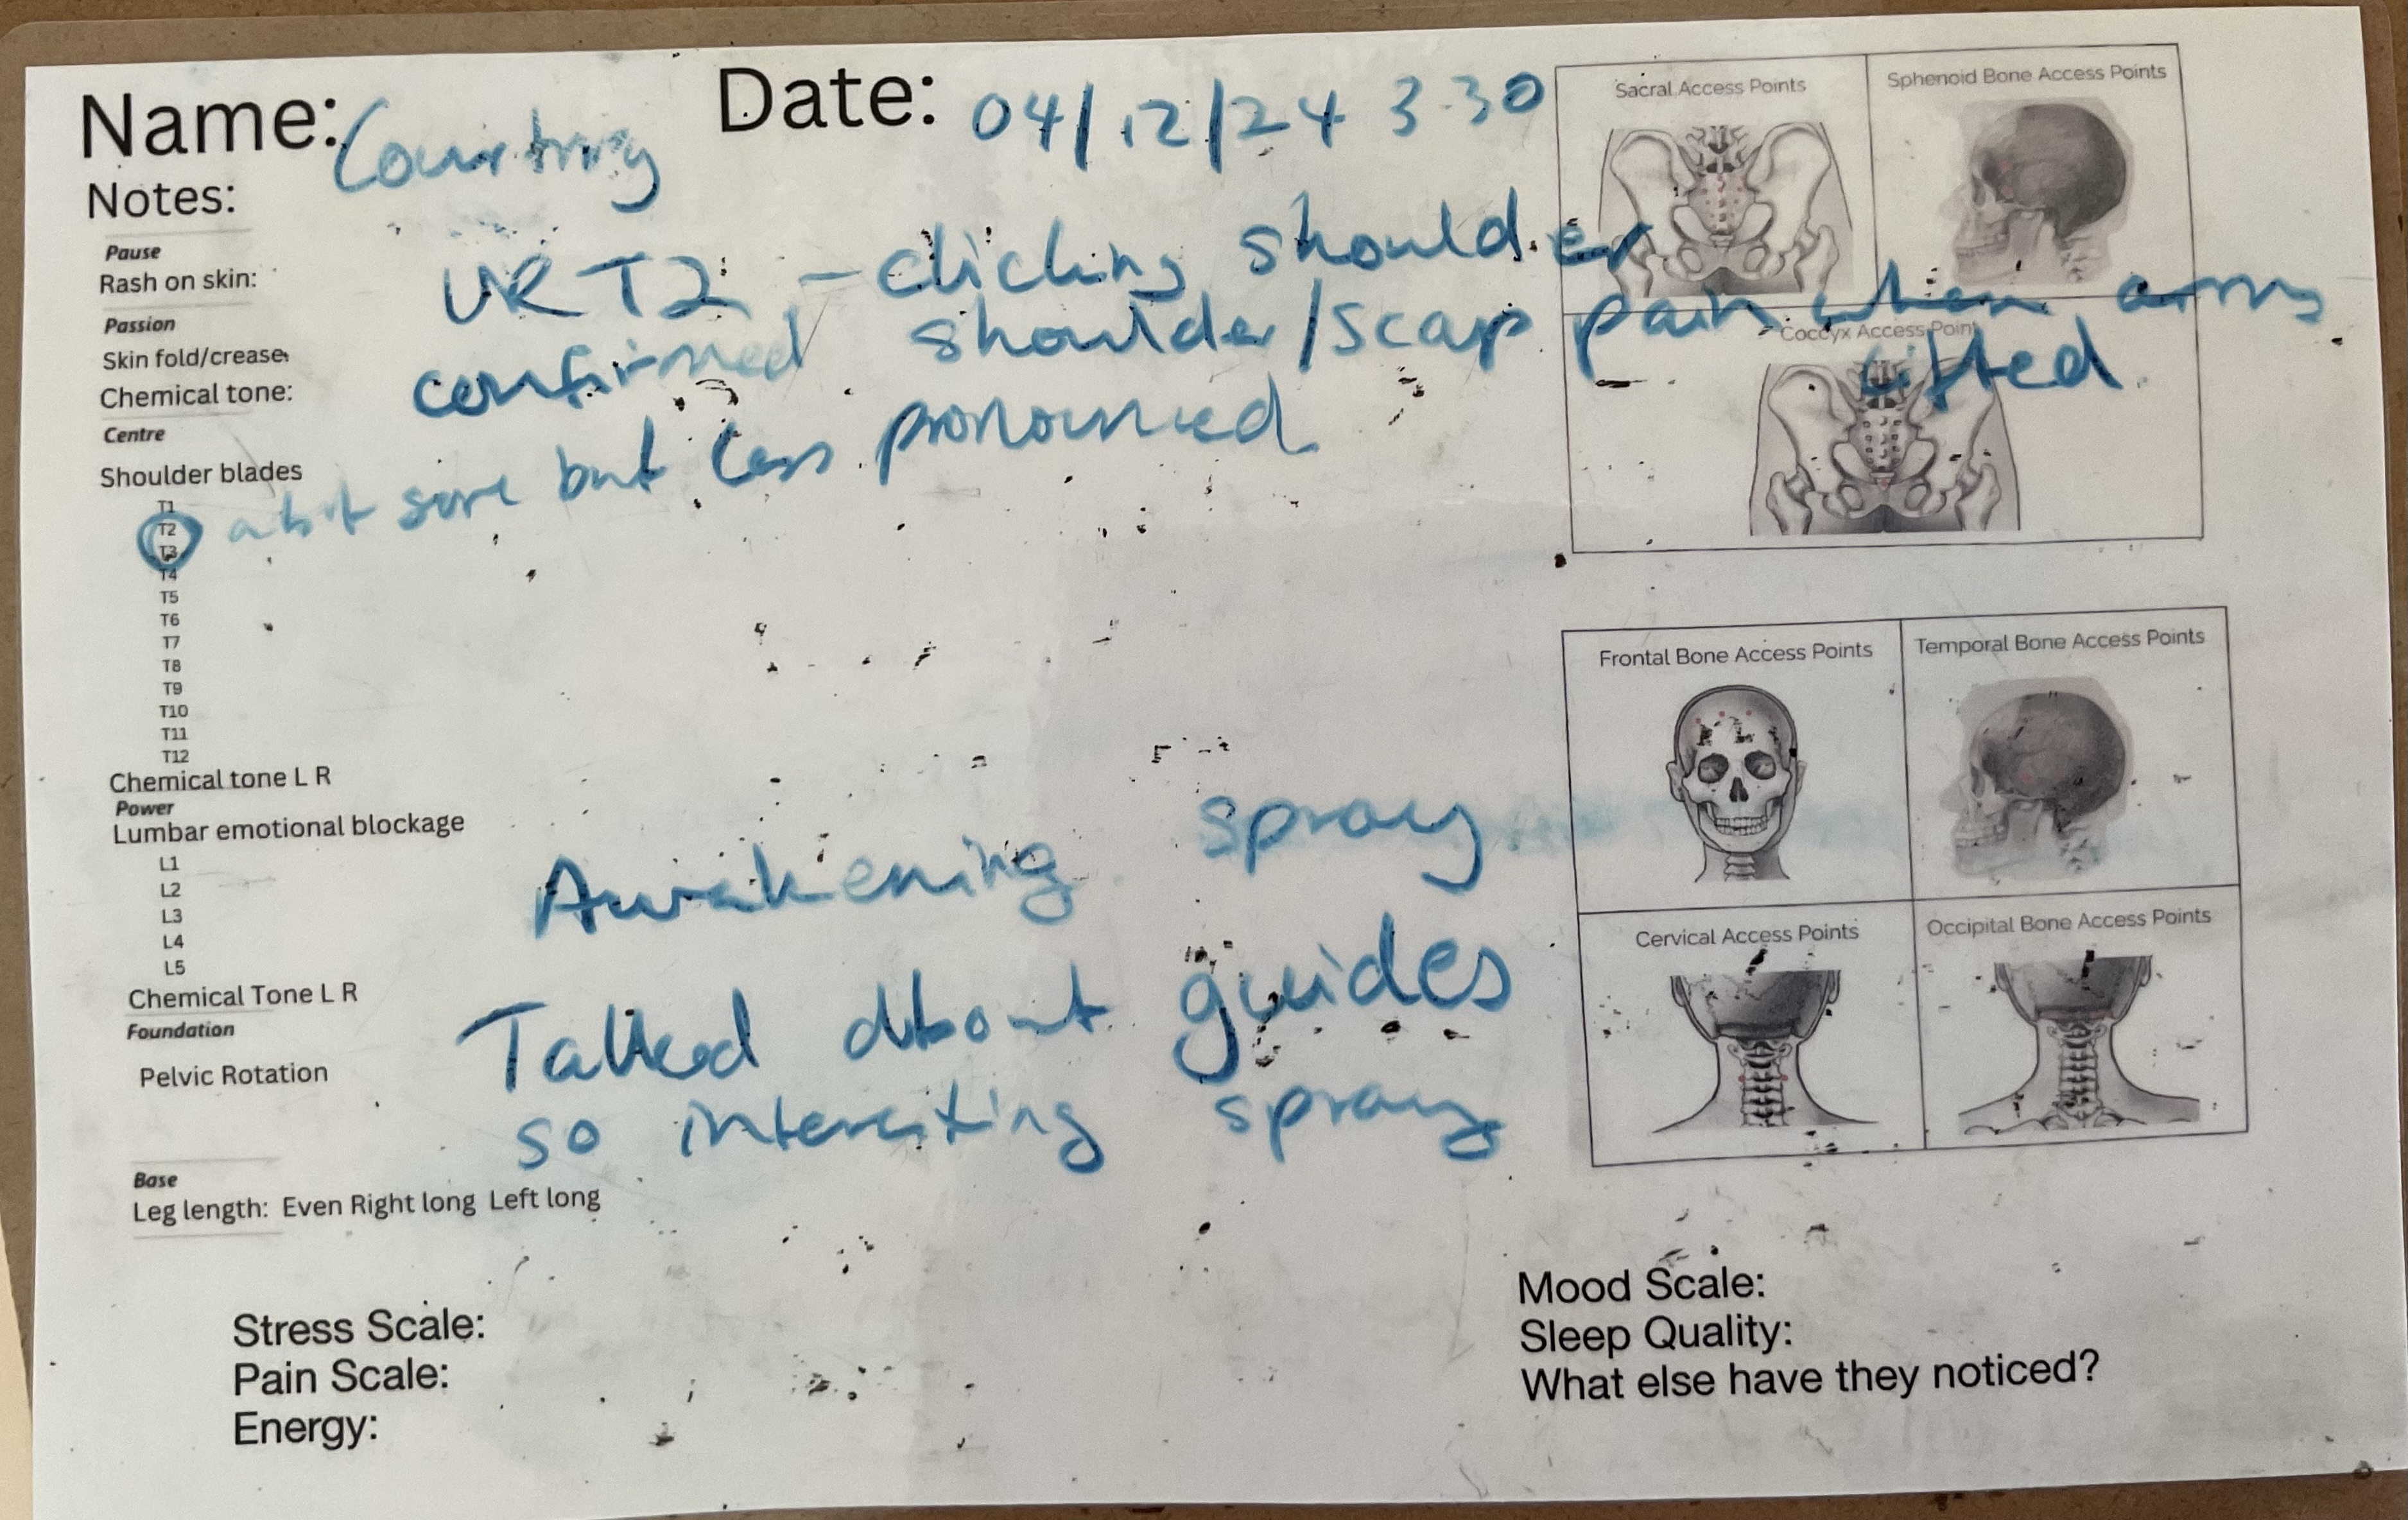 Name: Courtney
Date: 04/12/24 3.30
Notes:
Pause
Rash on skin:
URT2 - clicking shoulder
Passion
Skin fold/crease:
confirmed shoulder/scap pain when arms lifted.
Chemical tone:
Centre
Shoulder blades
T1
T2
a bit sore but less pronounced
T3
T4
T5
T6
T7
T8
T9
T10
T11
T12
Chemical tone L R
Power
Lumbar emotional blockage
L1
L2
L3
L4
L5
Awakening spray
Chemical Tone L R
Foundation
Pelvic Rotation
Talked about guides
so interesting spray
Base
Leg length: Even Right long Left long
Stress Scale:
Pain Scale:
Energy:
Sacral Access Points
Sphenoid Bone Access Points
Coccyx Access Point
Frontal Bone Access Points
Temporal Bone Access Points
Cervical Access Points
Occipital Bone Access Points
Mood Scale:
Sleep Quality:
What else have they noticed?